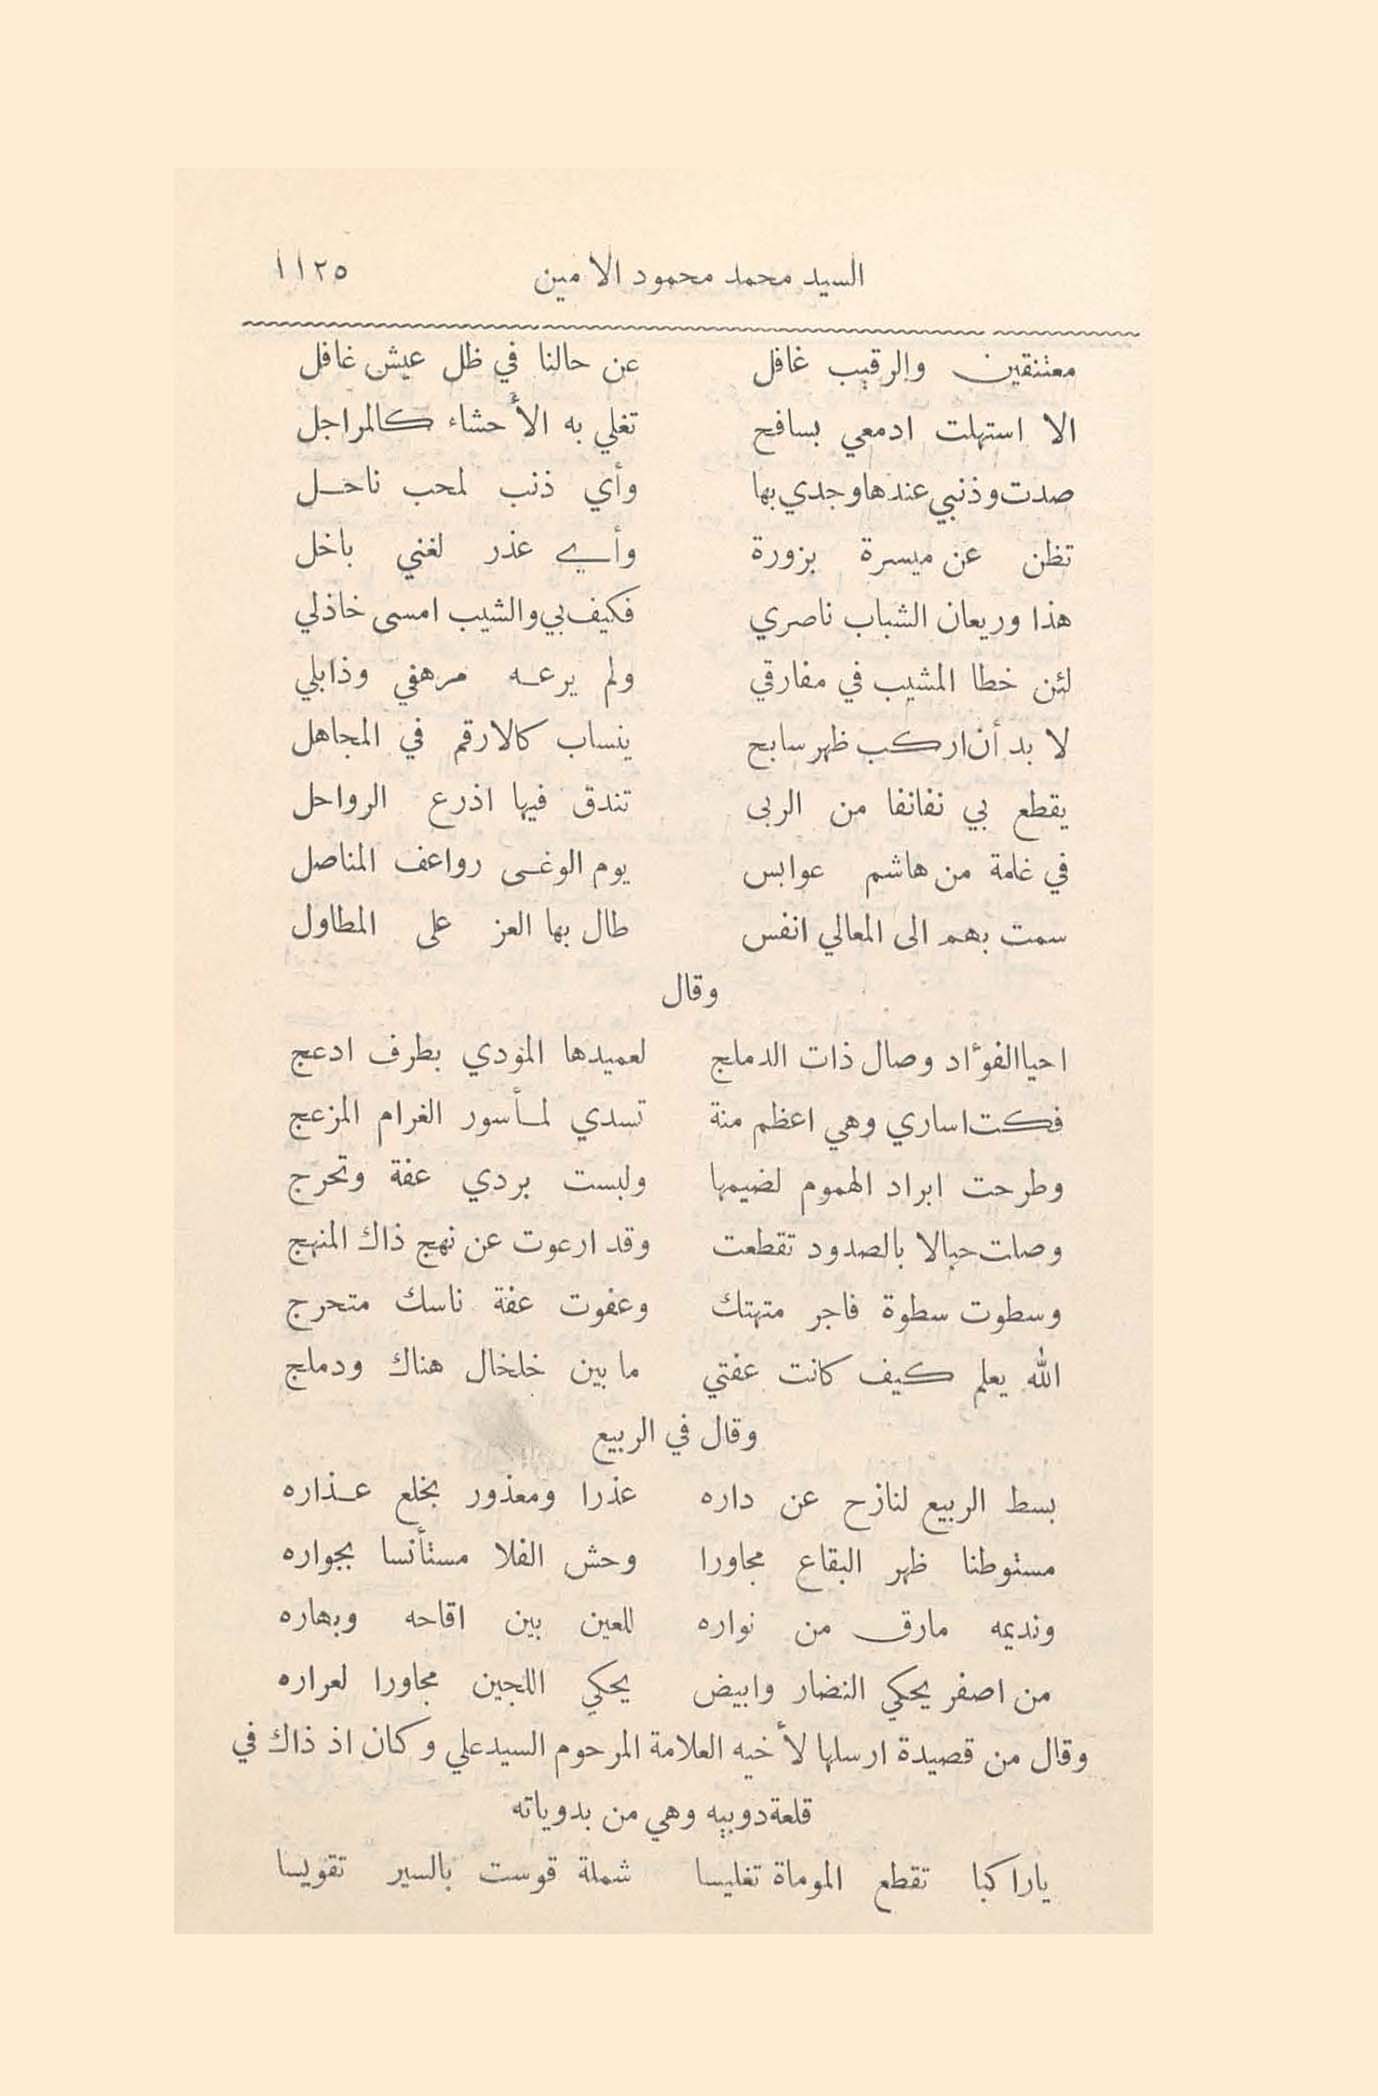 السيد محمد محمود الامين ١١٢٥
معتنقين والرقيب غافل عن حالنا في ظل عيش غافل
الا استهلت ادمعي بسافح تغلي به الأحشاء كالمراجل
صدت وذنبي عندها وجدي بها وأي ذنب لمحب ناحل
تظن عن ميسرة بزورة وأي عذر لغني باخل
هذا وريعان الشباب ناصري فكيف بي والشيب امسى خاذلي
لئن خطا المشيب في مفارقي ولم يرعه مرهفي وذابلي
لا بد أن اركب ظهر سابح ينساب كالارقم في المجاهل
يقطع بي نفانفا من الربى تندق فيها اذرع الرواحل
في غامة من هاشم عوابس يوم الوغى رواعف المناصل
سمت بهم الى المعالي انفس طال بها العز على المطاول
وقال
احيا الفؤاد وصال ذات الدملج لعميدها المؤدي بطرف ادعج
فكت اساري وهي اعظم منة تسدي لمأسور الغرام المزعج
وطرحت ابراد الهموم لضيمها ولبست بردي عفة وتحرج
وصلت حبالا بالصدود تقطعت وقد ارعوت عن نهج ذاك المنهج
وسطوت سطوة فاجر متهتك وعفوت عفة ناسك متحرج
الله يعلم كيف كانت عفتي ما بين خلخال هناك ودملج
وقال في الربيع
بسط الربيع لنازح عن داره عذرا ومعذور بخلع عذاره
مستوطنا ظهر البقاع مجاورا وحش الفلا مستأنسا بجواره
ونديمه مارق من نواره للعين بين اقاحه وبهاره
من اصفر يحكي النضار وابيض يحكي اللجين مجاورا لعراره
وقال من قصيدة ارسلها لأخيه العلامة المرحوم السيد علي وكان اذ ذاك في
قلعة دوبيه وهي من بدوياته
يا راكبا تقطع الموماة تغليسا شملة قوست بالسير تقويسا